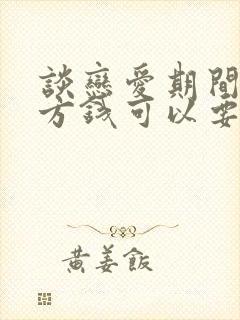 談戀愛期間
方錢可以要
黃姜飯